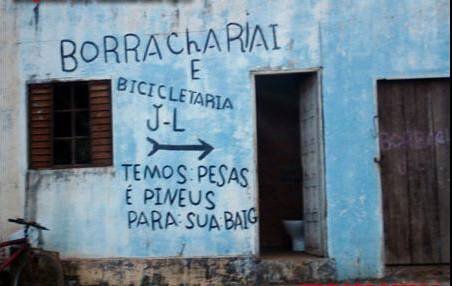 BORRAChARIAI
E
BICICLETARIA
J-L
TEMOS: PESAS
É PINEUS
PARA: SUA: BAIG